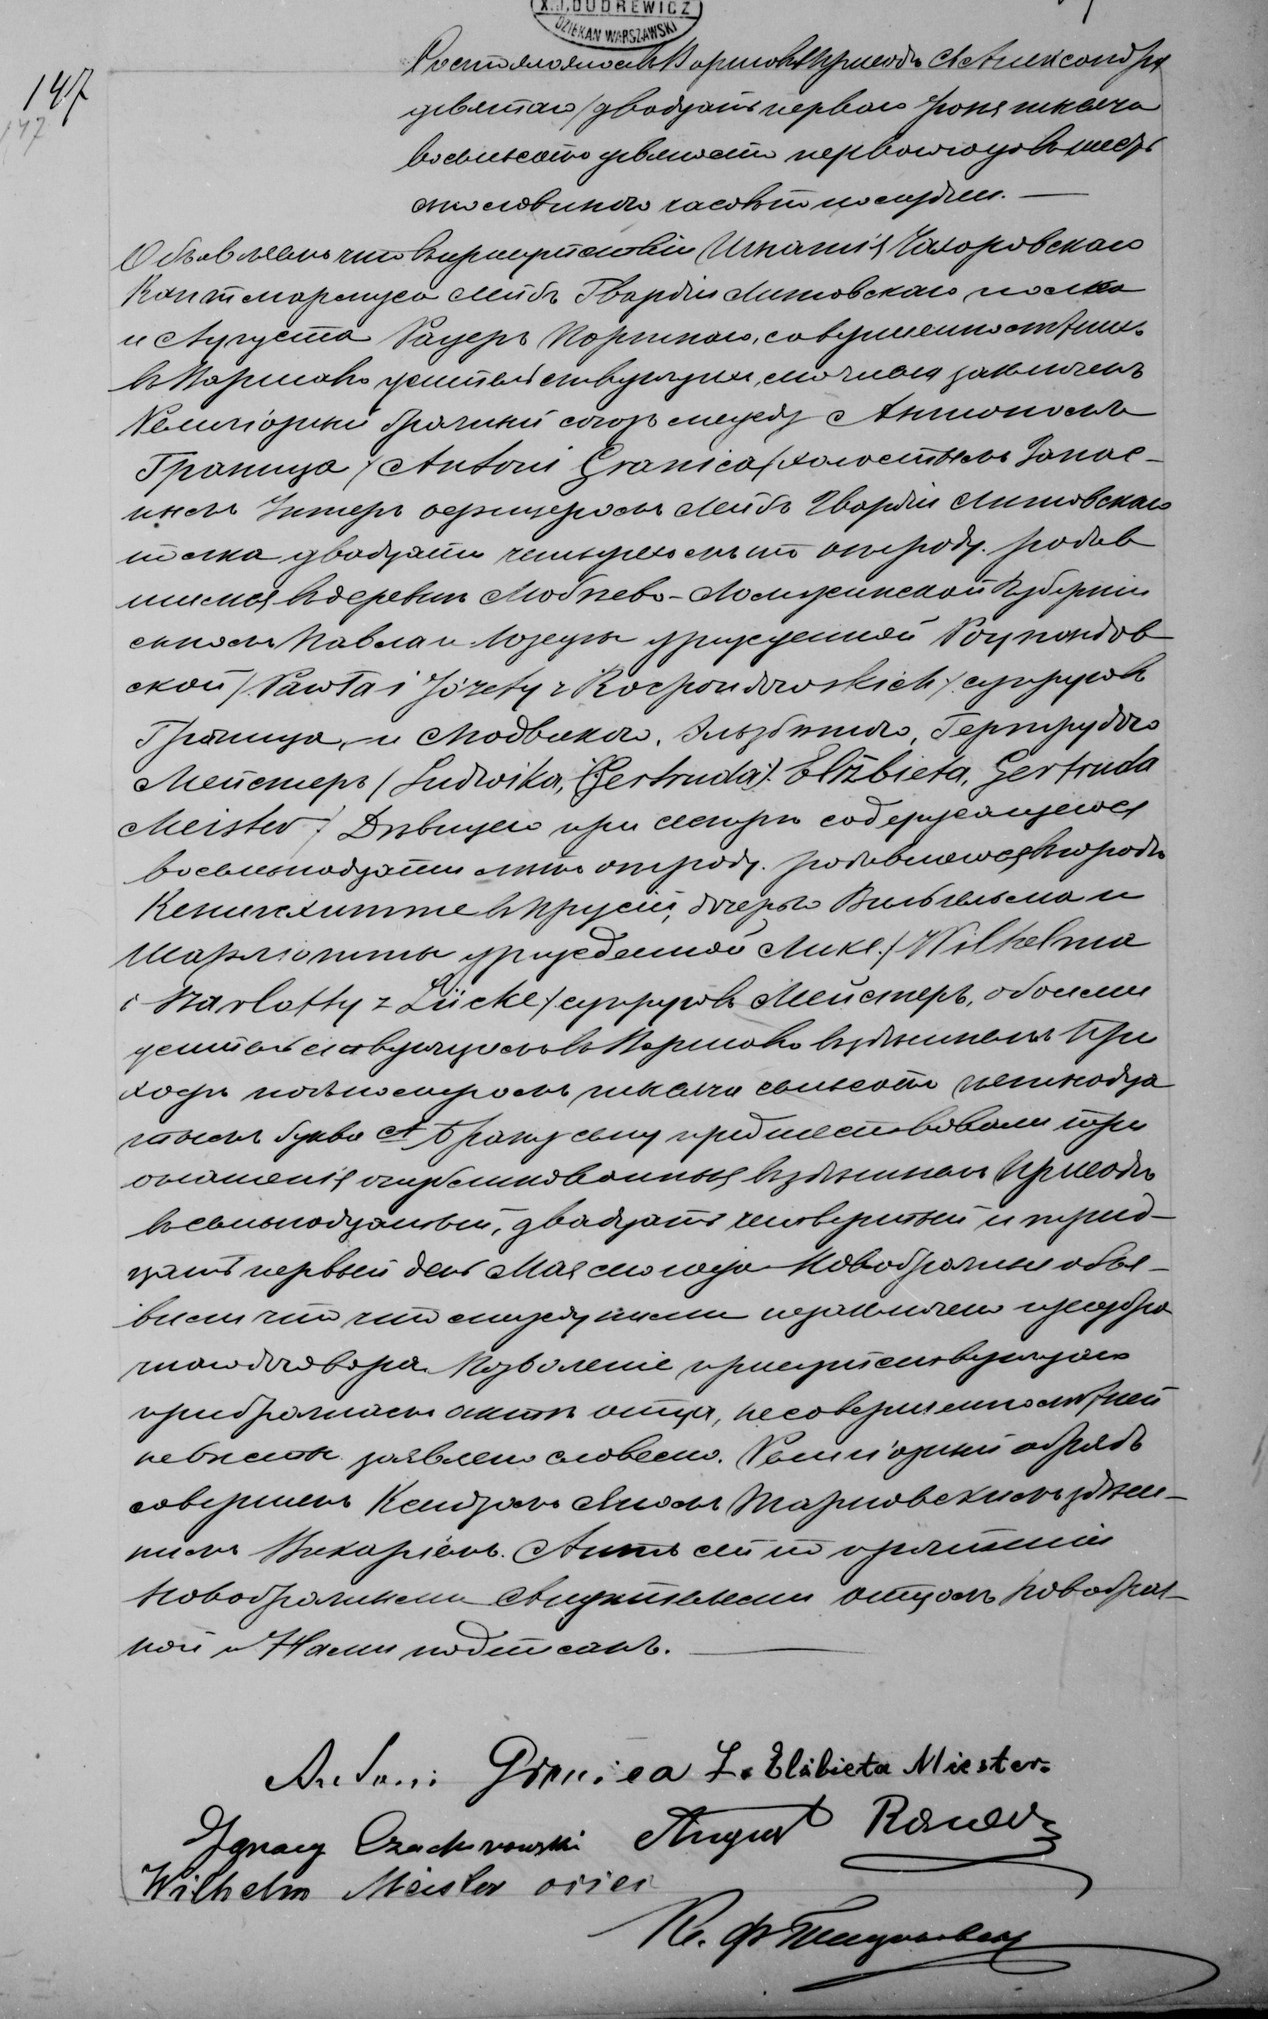 X. J. DUDREWICZ
DZIEKAN WARSZAWSKI
147
147
Состоялось въ Варшавѣ приходѣ Св. Александра
девятаго / двадцать перваго Іюня тысяча
восемьсотъ девяносто перваго года въ шесть
съ половиною часовъ по полудни. —
Объявляемъ что въ присутствіи Игнатія Чахоровскаго
Каптенармуса Лейбъ Гвардіи Литовскаго полка
и Августа Рауеръ Портнаго, совершеннолѣтнихъ
въ Варшавѣ жительствующихъ, сего числа заключенъ
Религіозный брачный союзъ между Антономъ
Граница / Antoni Granica / холостымъ Запас-
нымъ Унтеръ офицеромъ Лейбъ Гвардіи Литовскаго
полка двадцати четырехъ лѣтъ отъ роду, родив
шимся въ деревнѣ Ломжинской Губерніи
сыномъ Павла и Іозефы урожденной Роспондов
ской / Pawła i Józefy z Rospondowskich / супруговъ
Граница, и Людвикою, Эльзбѣтою, Гертрудою
Мейстеръ / Ludwika, (Gertruda). Elżbieta, Gertruda
Meister / Дѣвицею при содержащеюся
восемьнадцати лѣтъ отъ роду, родившеюся въ городѣ
Кенигсхитте въ Пруссіи, дочерью Вильгельма и
Шарлотты урожденной Люке / Wilhelma
i Szarlotty z Lücke / супруговъ Мейстеръ, обоими
жительствующими въ Варшавѣ въ здѣшнемъ При
ходѣ подъ номеромъ тысяча семьсотъ пятнадца
тымъ буква А. Браку сему предшествовали три
оглашенія опубликованныя въ здѣшнемъ Приходѣ
въ семьнадцатый, двадцать четвертый и трид-
цать первый день Мая сего года. Новобрачные объя-
вили что что между ними не заключено предбра
чнаго договора. Позволеніе присутствующаго
при брачномъ актѣ отца, несовершеннолѣтней
невѣсты заявлено словесно. Религіозный обрядъ
совершенъ Ксендзомъ Яномъ Тарновскимъ здѣш-
нимъ Викаріемъ. Актъ сей по прочтеніи
Новобрачными Свидѣтелями отцомъ новобрач-
ной и Нами подписанъ. —
Antoni Granica L. Elżbieta Miester.
Ignacy Czachorowski August Rauer
Wilhelm Meister ociec